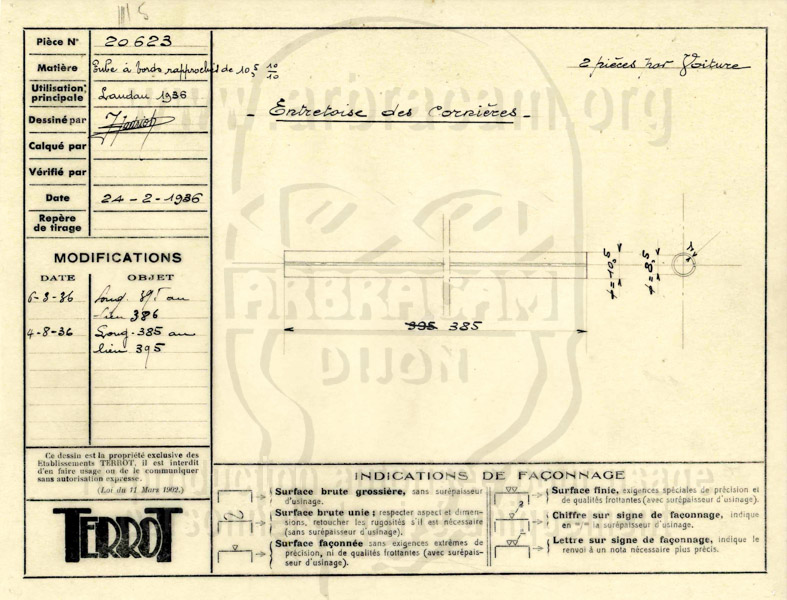 Pièce N° 20623
Matière Tube à bords rapprochés de 10,5 10/10
Utilisation principale Landau 1936
Dessiné par
Calqué par
Vérifié par
Date 24-2-1936
Repère de tirage
MODIFICATIONS
DATE OBJET
6-3-36 Long. 395 au
lieu 386
4-8-36 Long. 385 au
lieu 395
Ce dessin est la propriété exclusive des
Etablissements TERROT, il est interdit
d'en faire usage ou de le communiquer
sans autorisation expresse.
(Loi du 11 Mars 1902.)
TERROT
2 pièces par Voiture
- Entretoise des Cornières -
395 385
10,5
8,5
www.arbracam.org
ARBRACAM
DIJON
INDICATIONS DE FAÇONNAGE
Surface brute grossière, sans surépaisseur
d'usinage.
Surface brute unie; respecter aspect et dimen-
sions, retoucher les rugosités s'il est nécessaire
(sans surépaisseur d'usinage).
Surface façonnée sans exigences extrêmes de
précision, ni de qualités frottantes (avec surépais-
seur d'usinage).
Surface finie, exigences spéciales de précision et
de qualités frottantes (avec surépaisseur d'usinage).
Chiffre sur signe de façonnage, indique
en m/m la surépaisseur d'usinage.
Lettre sur signe de façonnage, indique le
renvoi à un nota nécessaire plus précis.